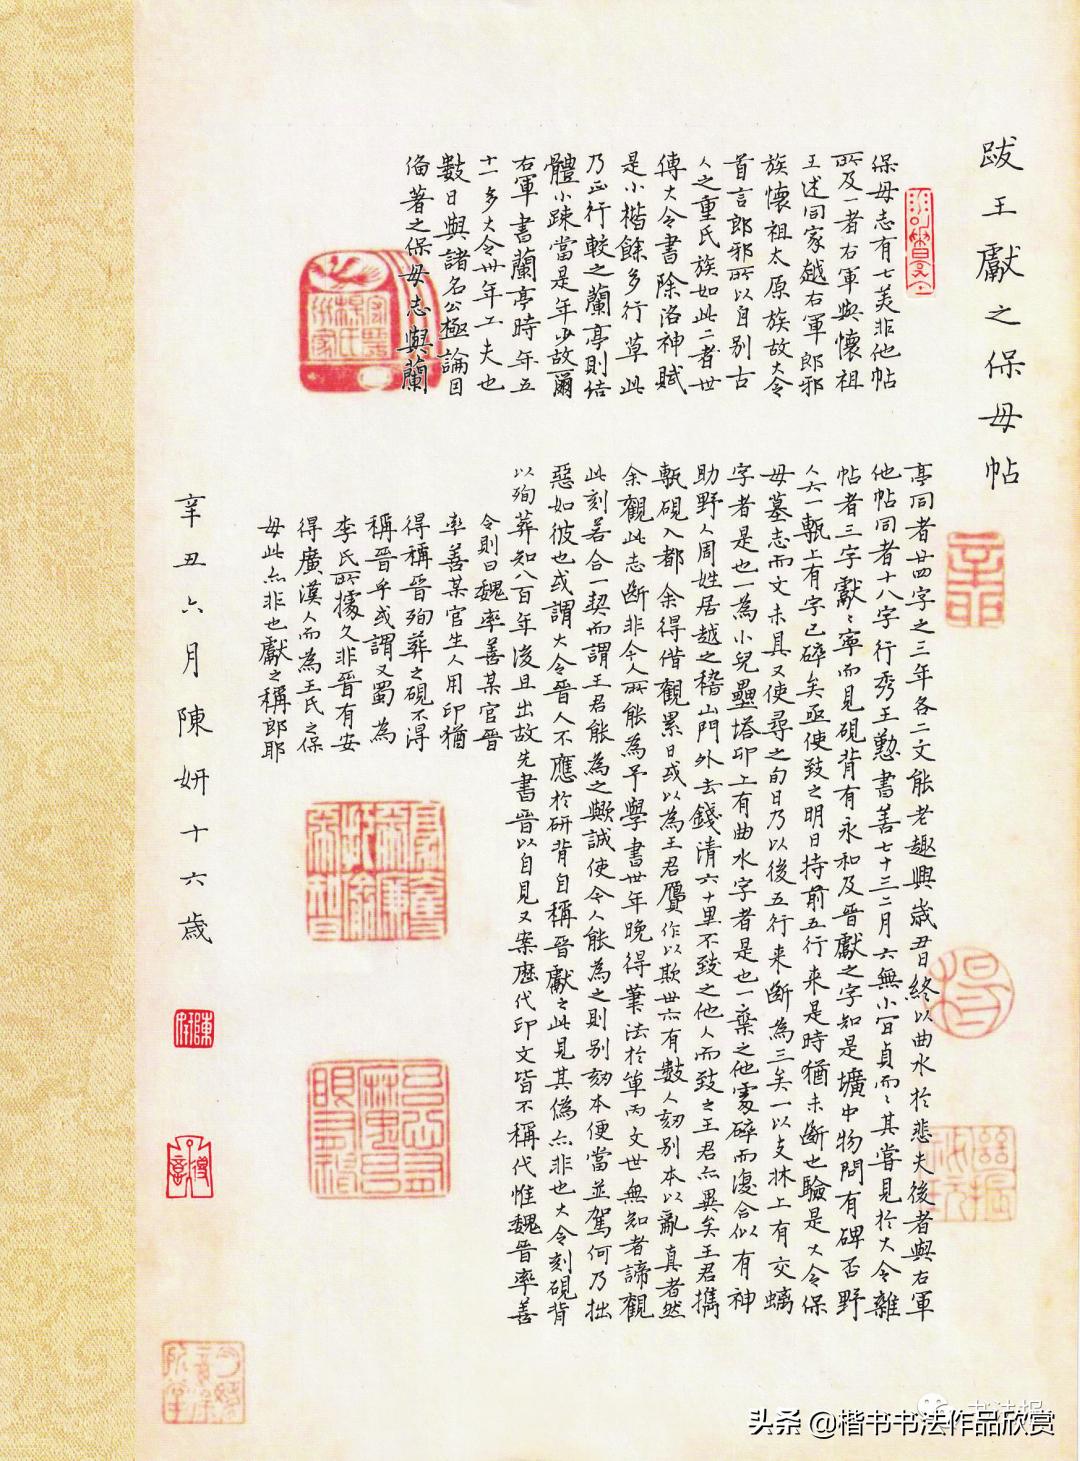 跋王獻之保母帖
保母志有七美非他帖
所及一者右軍與懷祖
王述同家越右軍郎邪
族懷祖太原族故大令
首言郎邪所以自別古
人之重氏族如此二者世
傳大令書除洛神賦
是小楷餘多行草此
乃正行較之蘭亭則結
體小疎當是年少故爾
右軍書蘭亭時年五
十一多大令卅年工夫也
數日與諸名公極論因
偹著之保母志與蘭
亭同者廿四字之三年各二文能老趣興歲丑日終以曲水於悲夫後者與右軍
他帖同者十八字行秀王懃書善七十三二月六無小宜貞而〻其嘗見於大令雜
帖者三字獻〻寧而見硯背有永和及晉獻之字知是壙中物問有碑否野
人六一甎上有字已碎矣亟使致之明日持前五行来是時猶未斷也驗是大令保
母墓志而文未具又使尋之旬日乃以後五行来斷為三矣一以支牀上有交螭
字者是也一為小兒壘塔卬上有曲水字者是也一棄之他䖏碎而復合似有神
助野人周姓居越之稽山門外去錢清六十里不致之他人而致之王君亦異矣王君攜
甎硯入都余得借觀累日或以為王君贋作以欺世亦有數人刻別本以亂真者然
余觀此志斷非今人所能為予學書卅年晚得筆法於單丙文世無知者諦觀
此刻若合一契而謂王君能為之歟誠使今人能為之則別刻本便當並駕何乃拙
惡如彼也或謂大令晉人不應於研背自稱晉獻之此見其偽亦非也大令刻硯背
以殉葬知八百年後且出故先書晉以自見又案歷代印文皆不稱代惟魏晉率善
令則曰魏率善某官晉
率善某官生人用印猶
得稱晉殉葬之硯不得
稱晉乎或謂又蜀為
李氏所據久非晉有安
得廣漢人而為王氏之保
母此亦非也獻之稱郎耶
辛丑六月陳妍十六歲
头条 @楷书书法作品欣赏